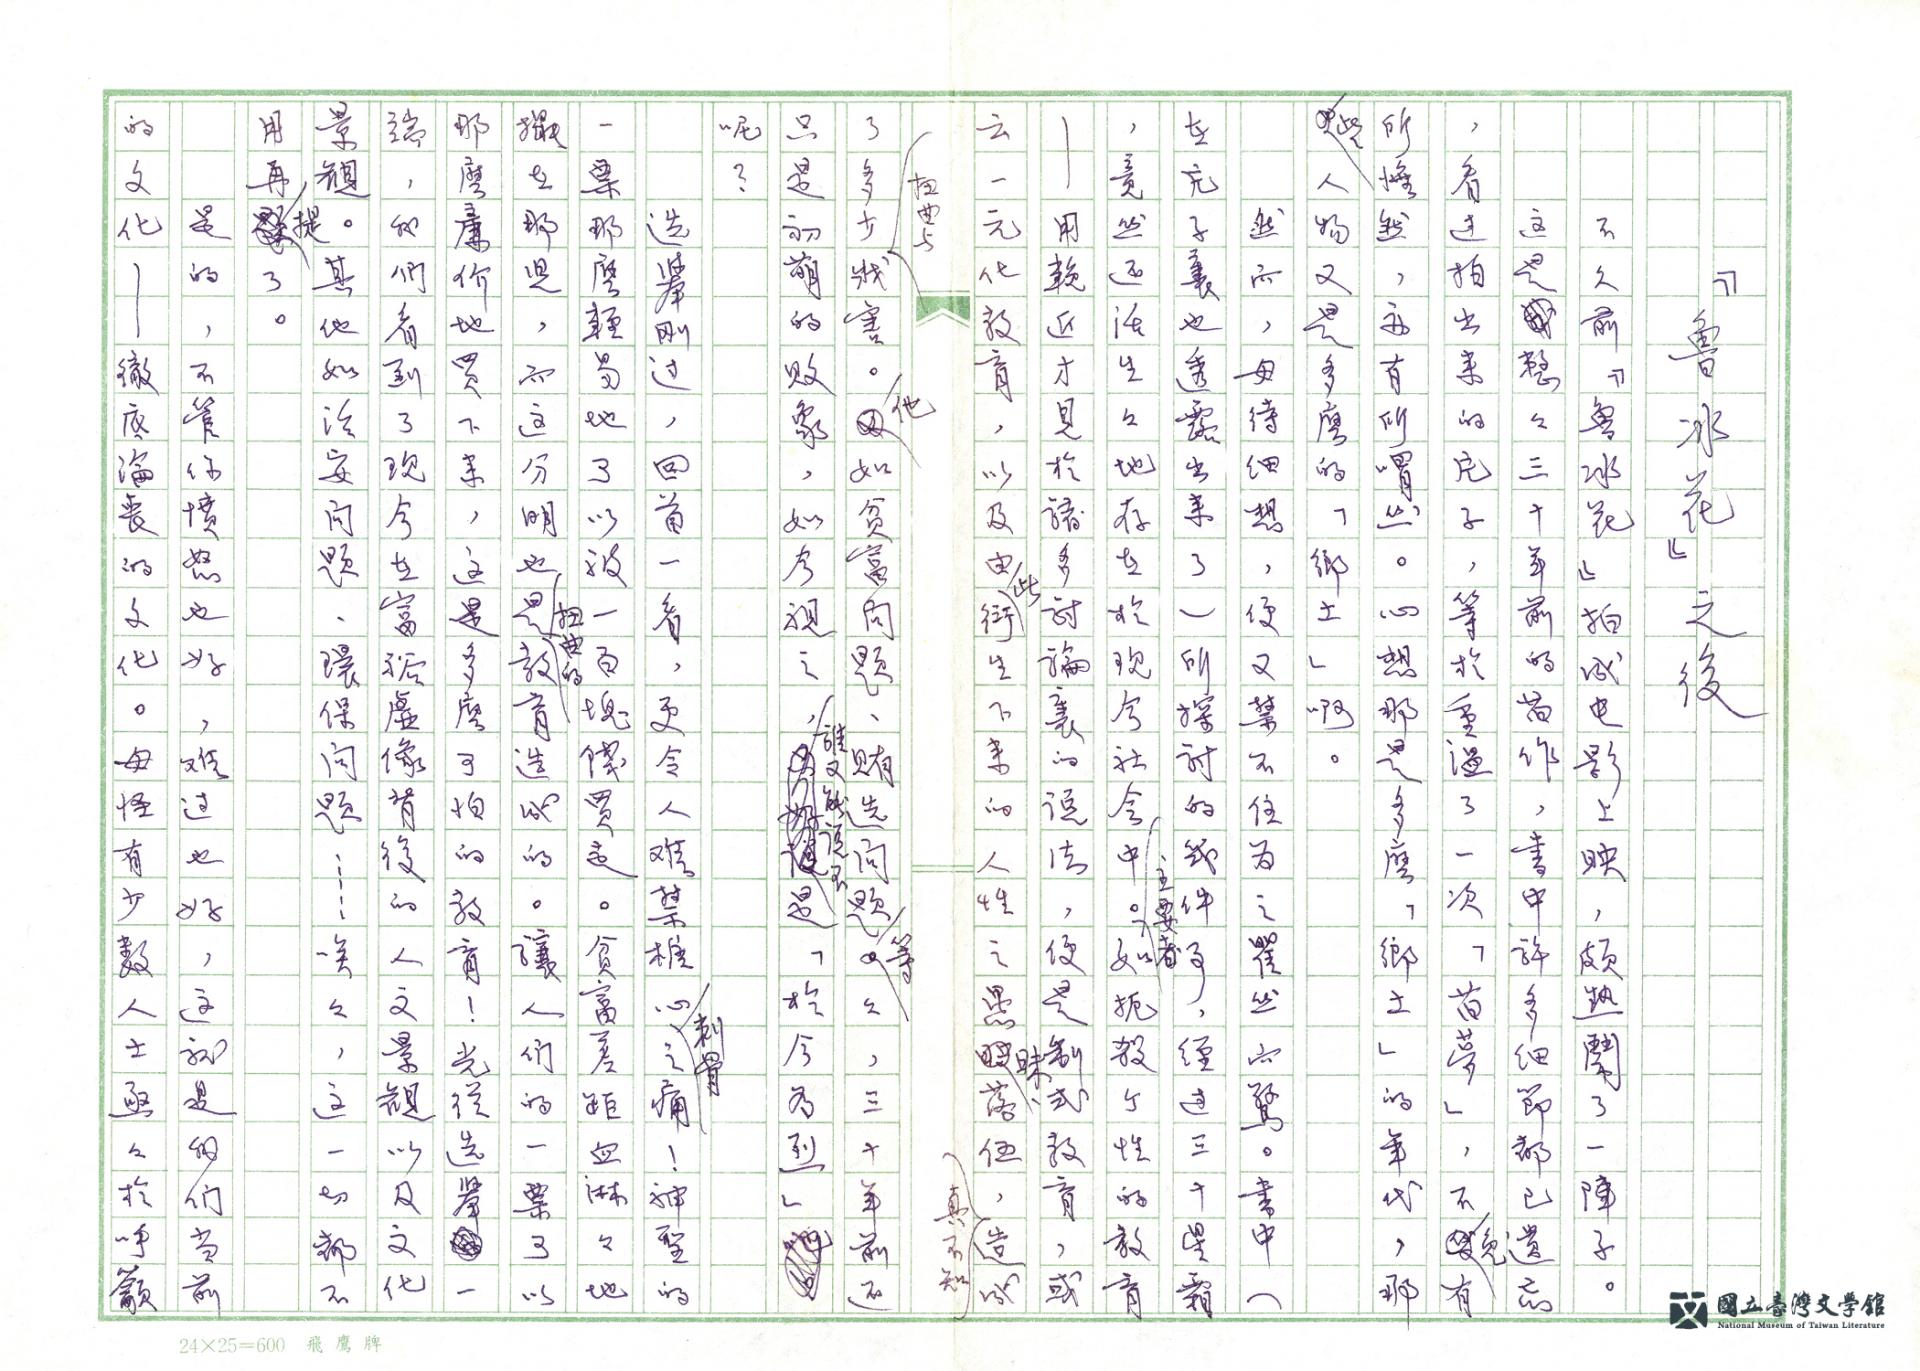 『魯冰花』之後
不久前『魯冰花』拍成电影上映，頗熱鬧了一陣子。
這是整々三十年前的旧作，書中許多細節都已遺忘
，看过拍出来的片子，等於重溫了一次「旧夢」，不免有
所悵然，亦有所喟然。心想那是多麼「鄉土」的年代，那
些人物又是多麼的「鄉土」啊。
然而，毋待細想，便又禁不住為之瞿然而驚。書中（
在片子裏也透露出来了）所探討的幾件事，經过三十星霜
，竟然还活生々地存在於現今社会中。主要者如扼殺个性的教育
——用較近才見於諸多討論裏的说法，便是制式教育，或
云一元化教育，以及由此衍生下来的人性之愚昧、落伍，真不知造成
了多少扭曲与戕害。他如贫富问題、賄选问題等々，三十年前还
只是初萌的敗象，如今視之，誰又能説不是「於今為烈」
呢？
选举剛过，回首一看，更令人难禁椎心刺骨之痛！神聖的
一票那麼輕易地可以被一百塊錢買走。贫富差距血淋々地
擺在那児，而这分明也是扭曲的教育造成的。讓人們的一票可以
那麼廉价地買下来，这是多麼可怕的教育！光從选举一
端，我們看到了現今在富裕虛像背後的人文景觀以及文化
景觀。其他如治安问題、環保问題……唉々，这一切都不
用再提了。
是的，不管你憤怒也好，难过也好，这就是我們当前
的文化——徹底淪丧的文化。毋怪有少數人士亟々於呼籲
24×25=600 飛鷹牌
國立臺灣文學館
National Museum of Taiwan Literature